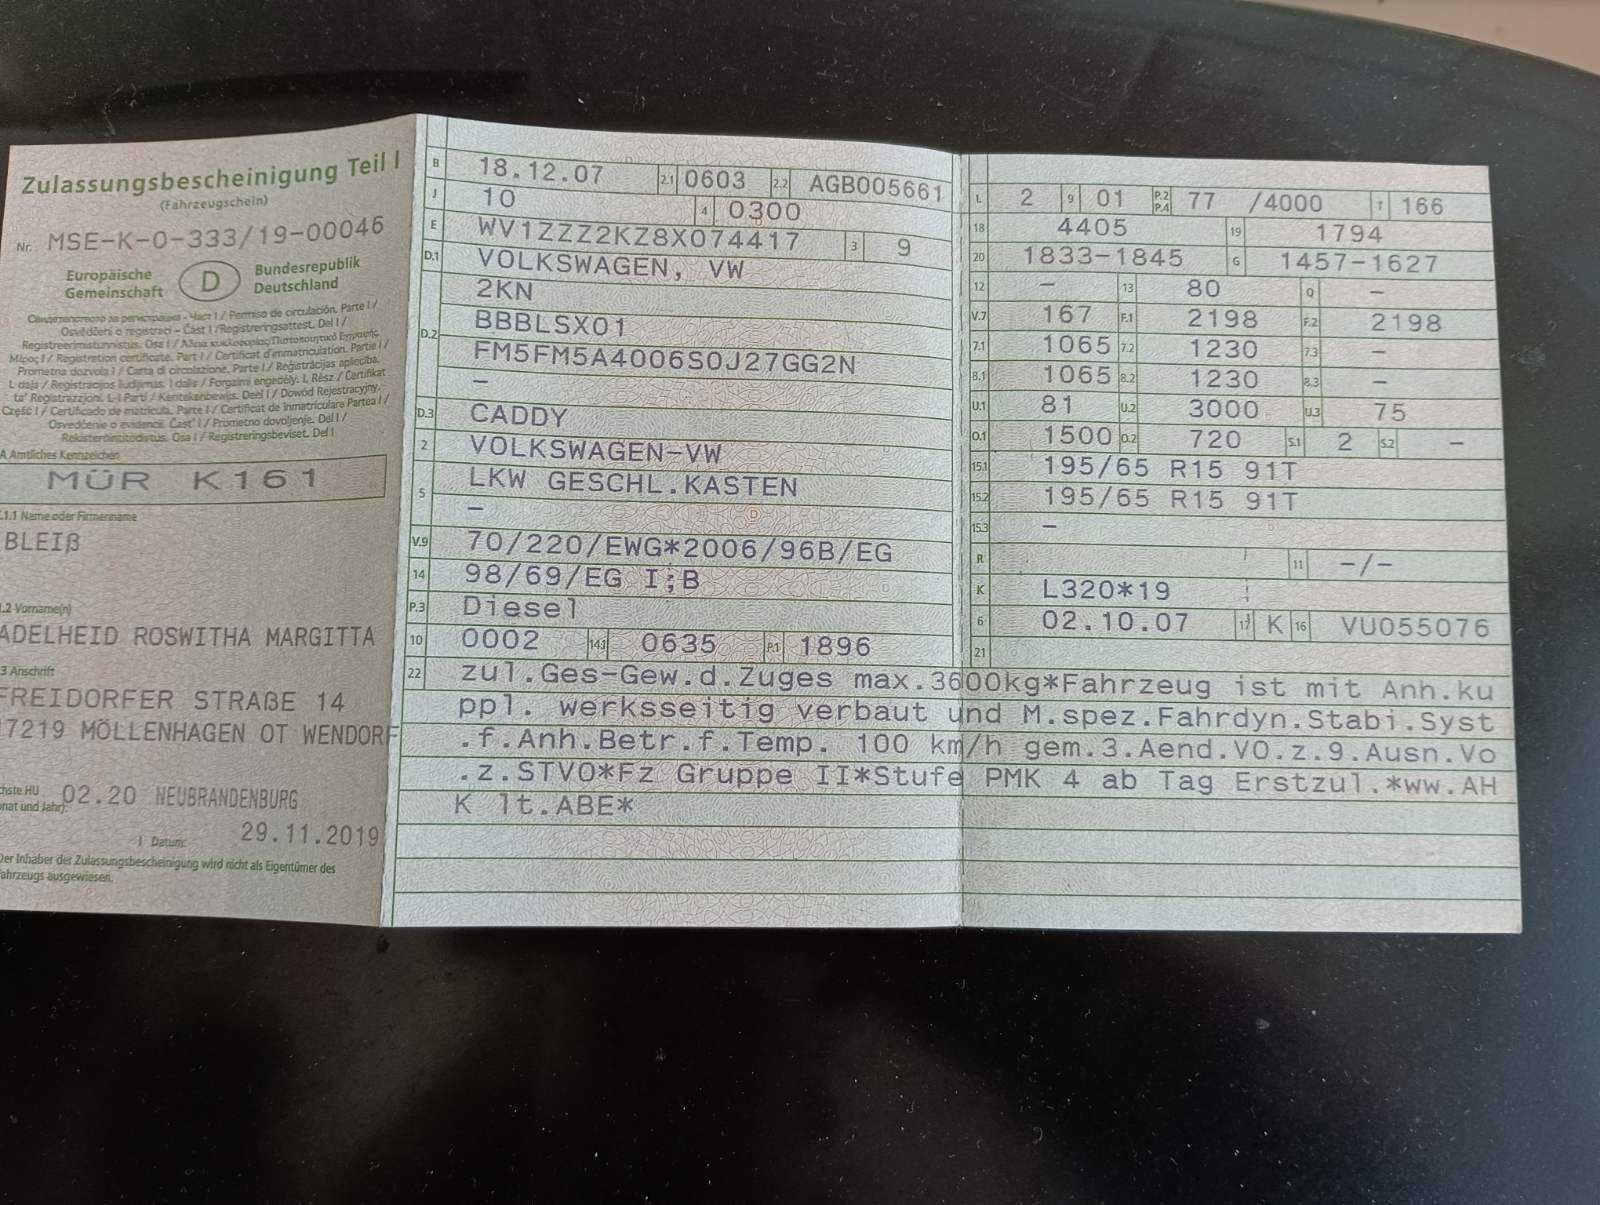 Zulassungsbescheinigung Teil I
(Fahrzeugschein)
Nr. MSE-K-0-333/19-00046
Europäische Gemeinschaft
D
Bundesrepublik Deutschland
Свидетелство за регистрация - Част I / Permiso de circulación. Parte I /
Osvědčení o registraci - Část I / Registreringsattest. Del I /
Registreerimistunnistus. Osa I / Άδεια κυκλοφορίας/Πιστοποιητικό Εγγραφής
Μέρος I / Registration certificate. Part I / Certificat d'immatriculation. Partie I /
Prometna dozvola I / Carta di circolazione. Parte I / Reģistrācijas apliecība.
I. daļa / Registracijos liudijimas. I dalis / Forgalmi engedély. I. Rész / Ċertifikat
ta' Reġistrazzjoni. L-I Parti / Kentekenbewijs. Deel I / Dowód Rejestracyjny.
Część I / Certificado de matrícula. Parte I / Certificat de înmatriculare Partea I /
Osvedčenie o evidencii. Časť I / Prometno dovoljenje. Del I /
Rekisteröintitodistus. Osa I / Registreringsbeviset. Del I
A Amtliches Kennzeichen
MÜR K161
.1.1 Name oder Firmenname
BLEIß
.2 Vorname(n)
ADELHEID ROSWITHA MARGITTA
3 Anschrift
FREIDORFER STRAßE 14
17219 MÖLLENHAGEN OT WENDORF
chste HU
nat und Jahr): 02.20 NEUBRANDENBURG
I Datum: 29.11.2019
Der Inhaber der Zulassungsbescheinigung wird nicht als Eigentümer des
Fahrzeugs ausgewiesen.
B 18.12.07 2.1 0603 2.2 AGB005661
J 10 4 0300
E WV1ZZZ2KZ8X074417 3 9
D.1 VOLKSWAGEN, VW
2KN
D.2 BBBLSX01
FM5FM5A4006S0J27GG2N
–
D.3 CADDY
2 VOLKSWAGEN-VW
5 LKW GESCHL.KASTEN
–
V.9 70/220/EWG*2006/96B/EG
14 98/69/EG I;B
P.3 Diesel
10 0002 14.1 0635 P.1 1896
L 2 9 01 P.2 P.4 77 /4000 T 166
18 4405 19 1794
20 1833-1845 G 1457-1627
12 – 13 80 Q –
V.7 167 F.1 2198 F.2 2198
7.1 1065 7.2 1230 7.3 –
8.1 1065 8.2 1230 8.3 –
U.1 81 U.2 3000 U.3 75
O.1 1500 O.2 720 S.1 2 S.2 –
15.1 195/65 R15 91T
15.2 195/65 R15 91T
15.3 –
R 11 –/–
K L320*19
6 02.10.07 17 K 16 VU055076
21
22 zul.Ges-Gew.d.Zuges max.3600kg*Fahrzeug ist mit Anh.ku
ppl. werksseitig verbaut und M.spez.Fahrdyn.Stabi.Syst
.f.Anh.Betr.f.Temp. 100 km/h gem.3.Aend.VO.z.9.Ausn.Vo
.z.STVO*Fz Gruppe II*Stufe PMK 4 ab Tag Erstzul.*ww.AH
K lt.ABE*